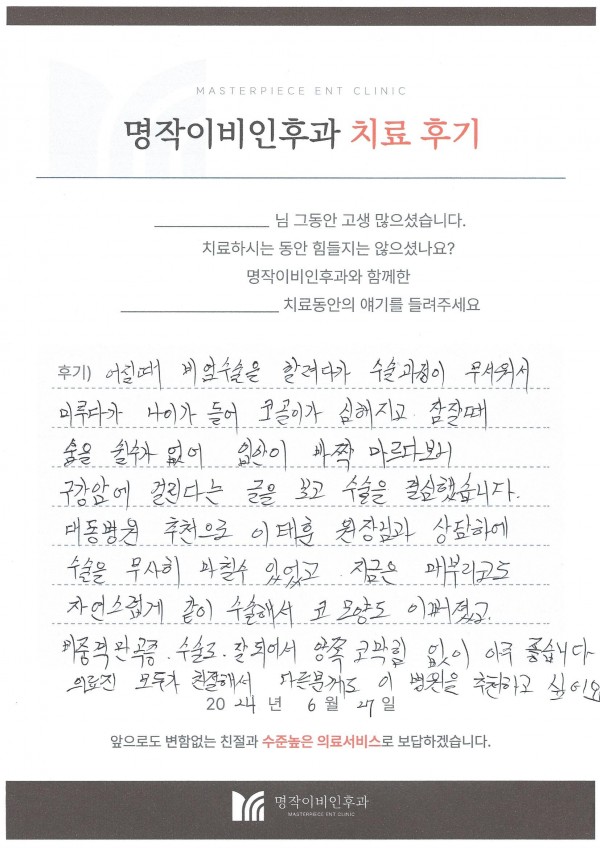 MASTERPIECE ENT CLINIC
명작이비인후과 치료 후기
님 그동안 고생 많으셨습니다.
치료하시는 동안 힘들지는 않으셨나요?
명작이비인후과와 함께한
치료동안의 얘기를 들려주세요
후기) 어릴때 비염수술을 할려다가 수술과정이 무서워서
미루다가 나이가 들어 코골이가 심해지고 잠잘때
숨을 쉴수가 없어 입안이 바짝 마르다보니
구강암에 걸린다는 글을 보고 수술을 결심했습니다.
대동병원 추천으로 이태훈 원장님과 상담하에
수술을 무사히 마칠수 있었고 지금은 매부리코도
자연스럽게 같이 수술해서 코 모양도 이뻐졌고.
비중격만곡증. 수술도. 잘되어서 양쪽 코막힘 없이 아주 좋습니다
의료진 모두가 친절해서 다른분께도 이 병원을 추천하고 싶어요
2024년 6월 27일
앞으로도 변함없는 친절과 수준높은 의료서비스로 보답하겠습니다.
명작이비인후과
MASTERPIECE ENT CLINIC